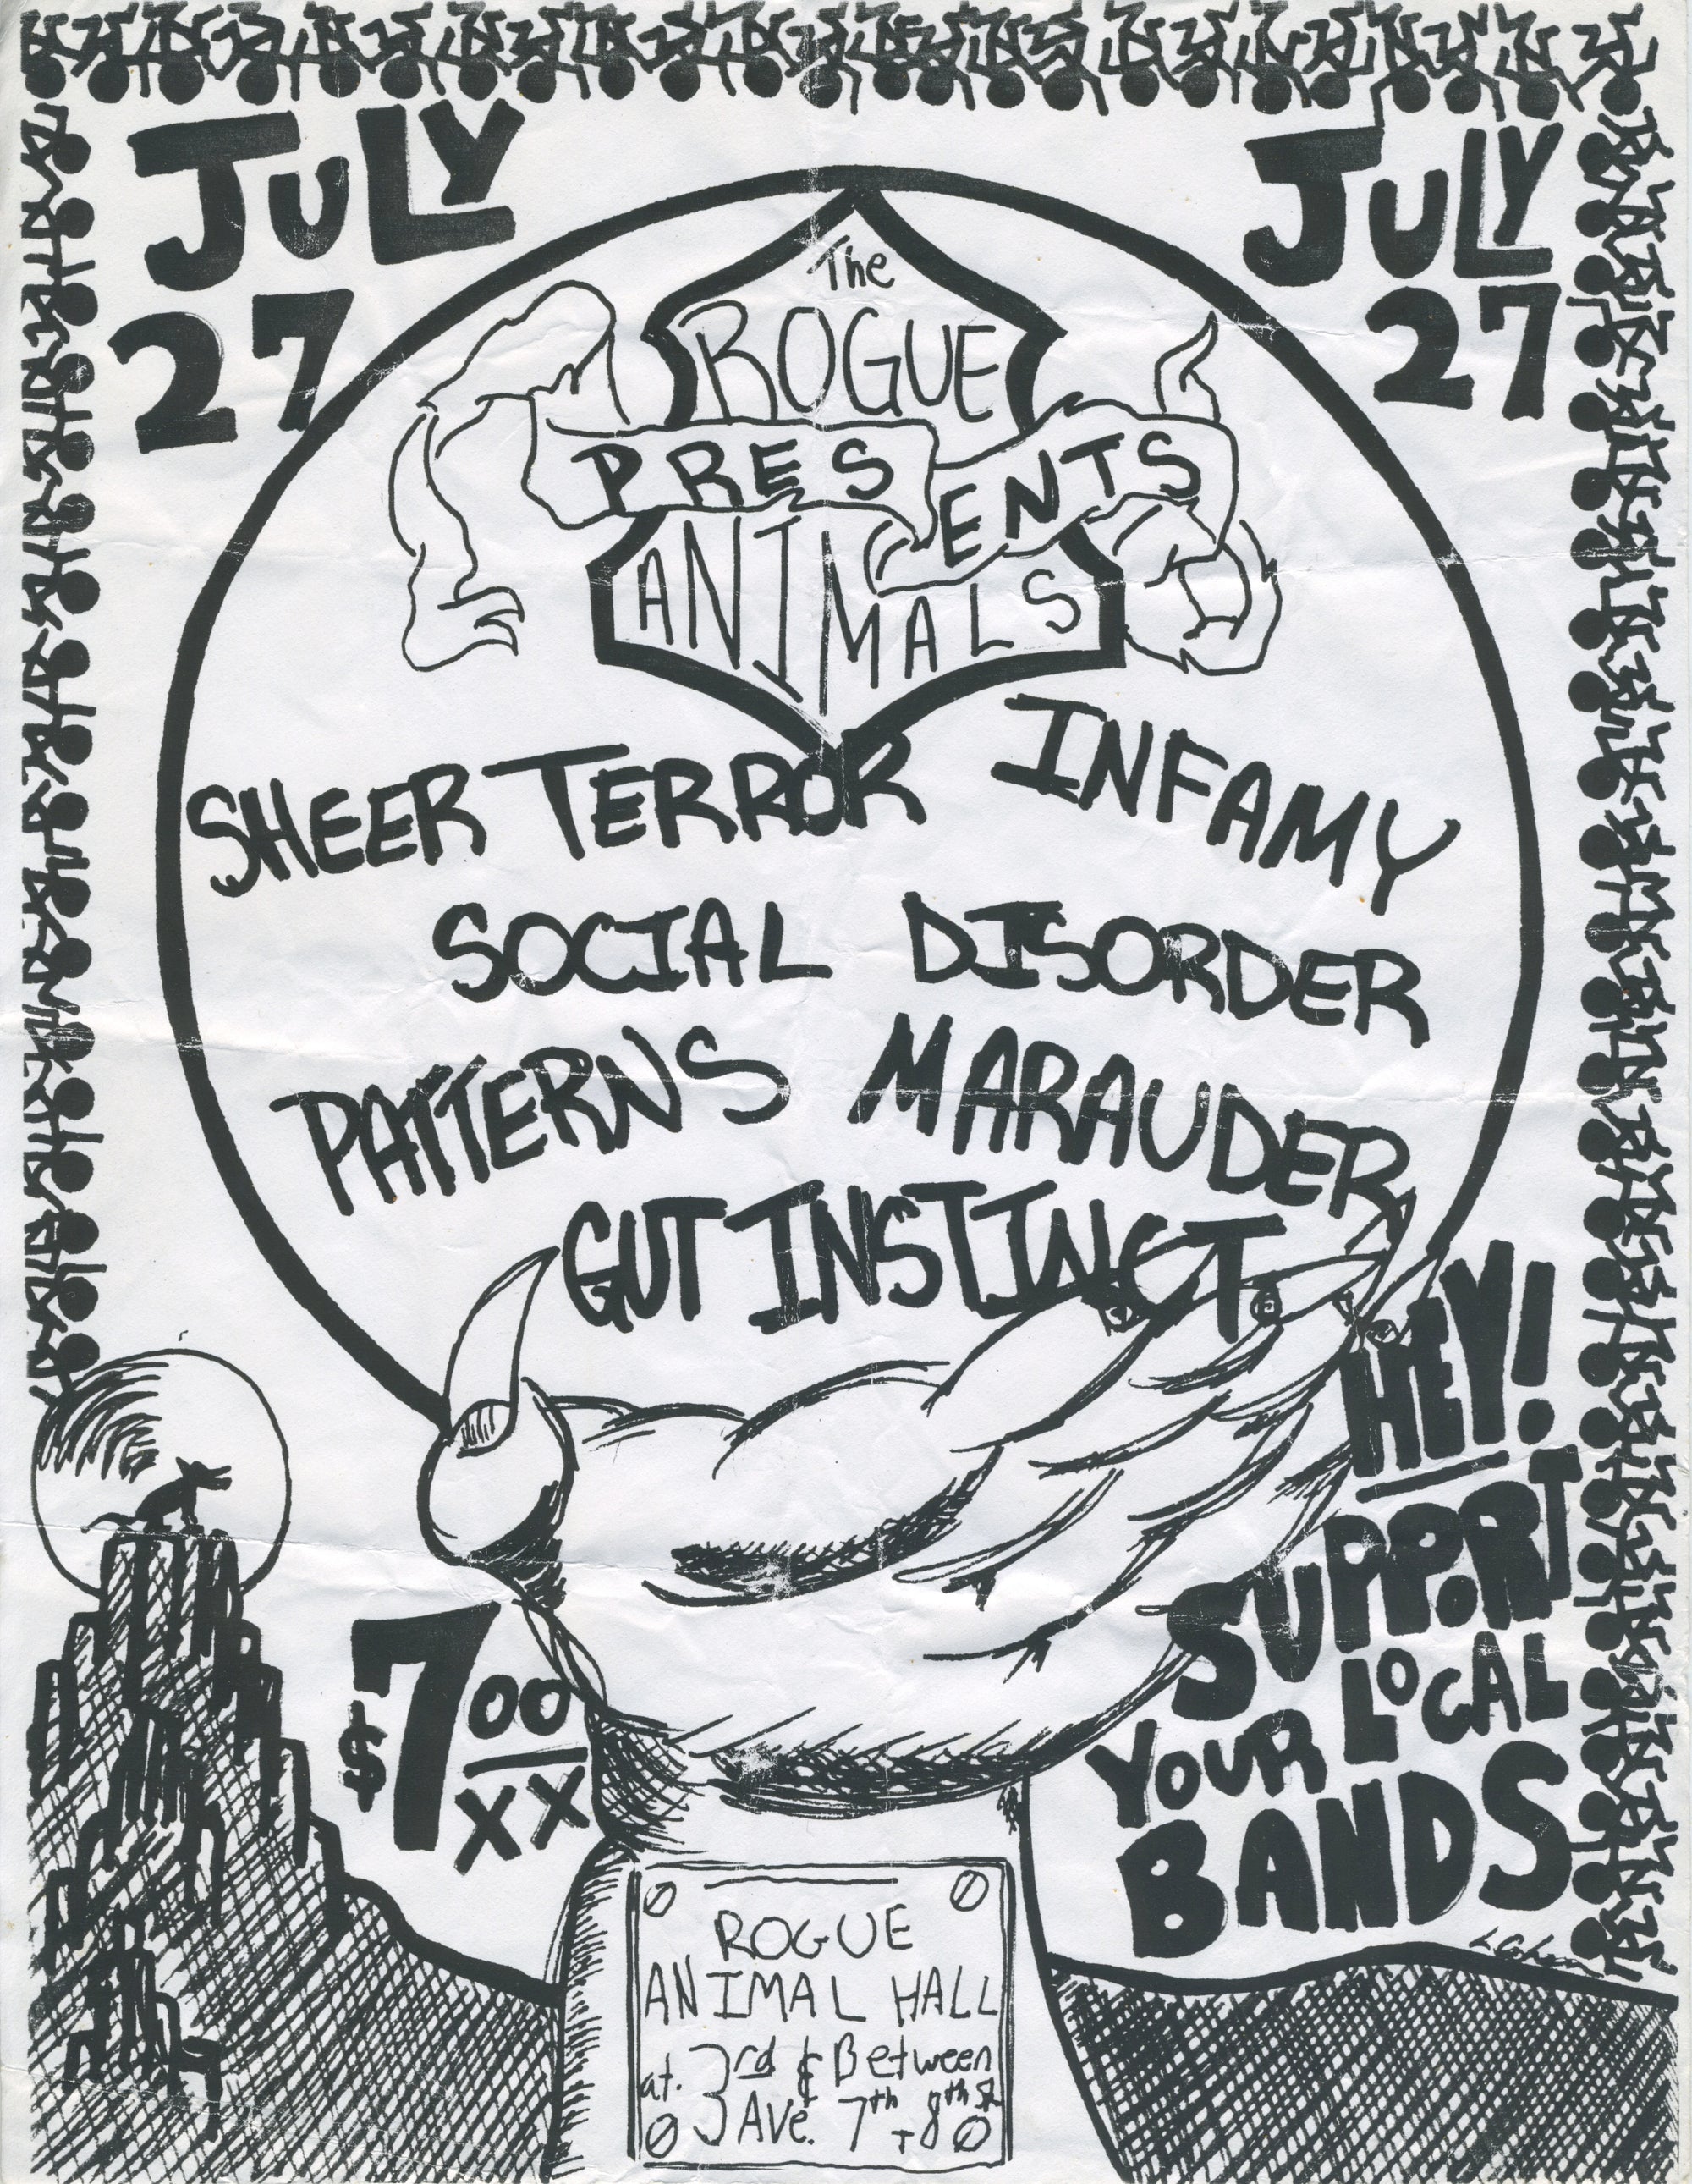 JULY
27
JULY
27
The
ROGUE
PRESENTS
ANIMALS
SHEER TERROR INFAMY
SOCIAL DISORDER
PATTERNS MARAUDER
GUT INSTINCT
HEY!
SUPPORT
YOUR LOCAL
BANDS
$7.00
XX
ROGUE
ANIMAL HALL
at. 3rd & Between
3 Ave. 7th + 8th St